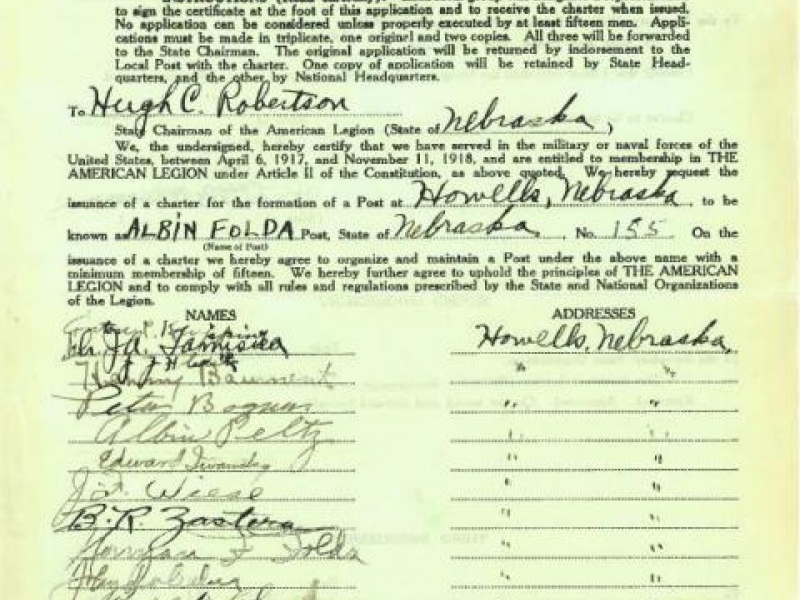 to sign the certificate at the foot of this application and to receive the charter when issued.
No application can be considered unless properly executed by at least fifteen men. Appli-
cations must be made in triplicate, one original and two copies. All three will be forwarded
to the State Chairman. The original application will be returned by indorsement to the
Local Post with the charter. One copy of application will be retained by State Head-
quarters, and the other by National Headquarters.
To Hugh C. Robertson
State Chairman of the American Legion (State of Nebraska,
We, the undersigned, hereby certify that we have served in the military or naval forces of the
United States, between April 6, 1917, and November 11, 1918, and are entitled to membership in THE
AMERICAN LEGION under Article II of the Constitution, as above quoted. We hereby request the
issuance of a charter for the formation of a Post at Howells, Nebraska, to be
known as ALBIN FOLDA Post, State of Nebraska, No. 155 On the
(Name of Post)
issuance of a charter we hereby agree to organize and maintain a Post under the above name with a
minimum membership of fifteen. We hereby further agree to uphold the principles of THE AMERICAN
LEGION and to comply with all rules and regulations prescribed by the State and National Organizations
of the Legion.
NAMES ADDRESSES
Howells, Nebraska,
" "
Peter " "
Albin Peltz " "
Edward " "
Wiese " "
B. R. Zastera " "
Folda " "
" "